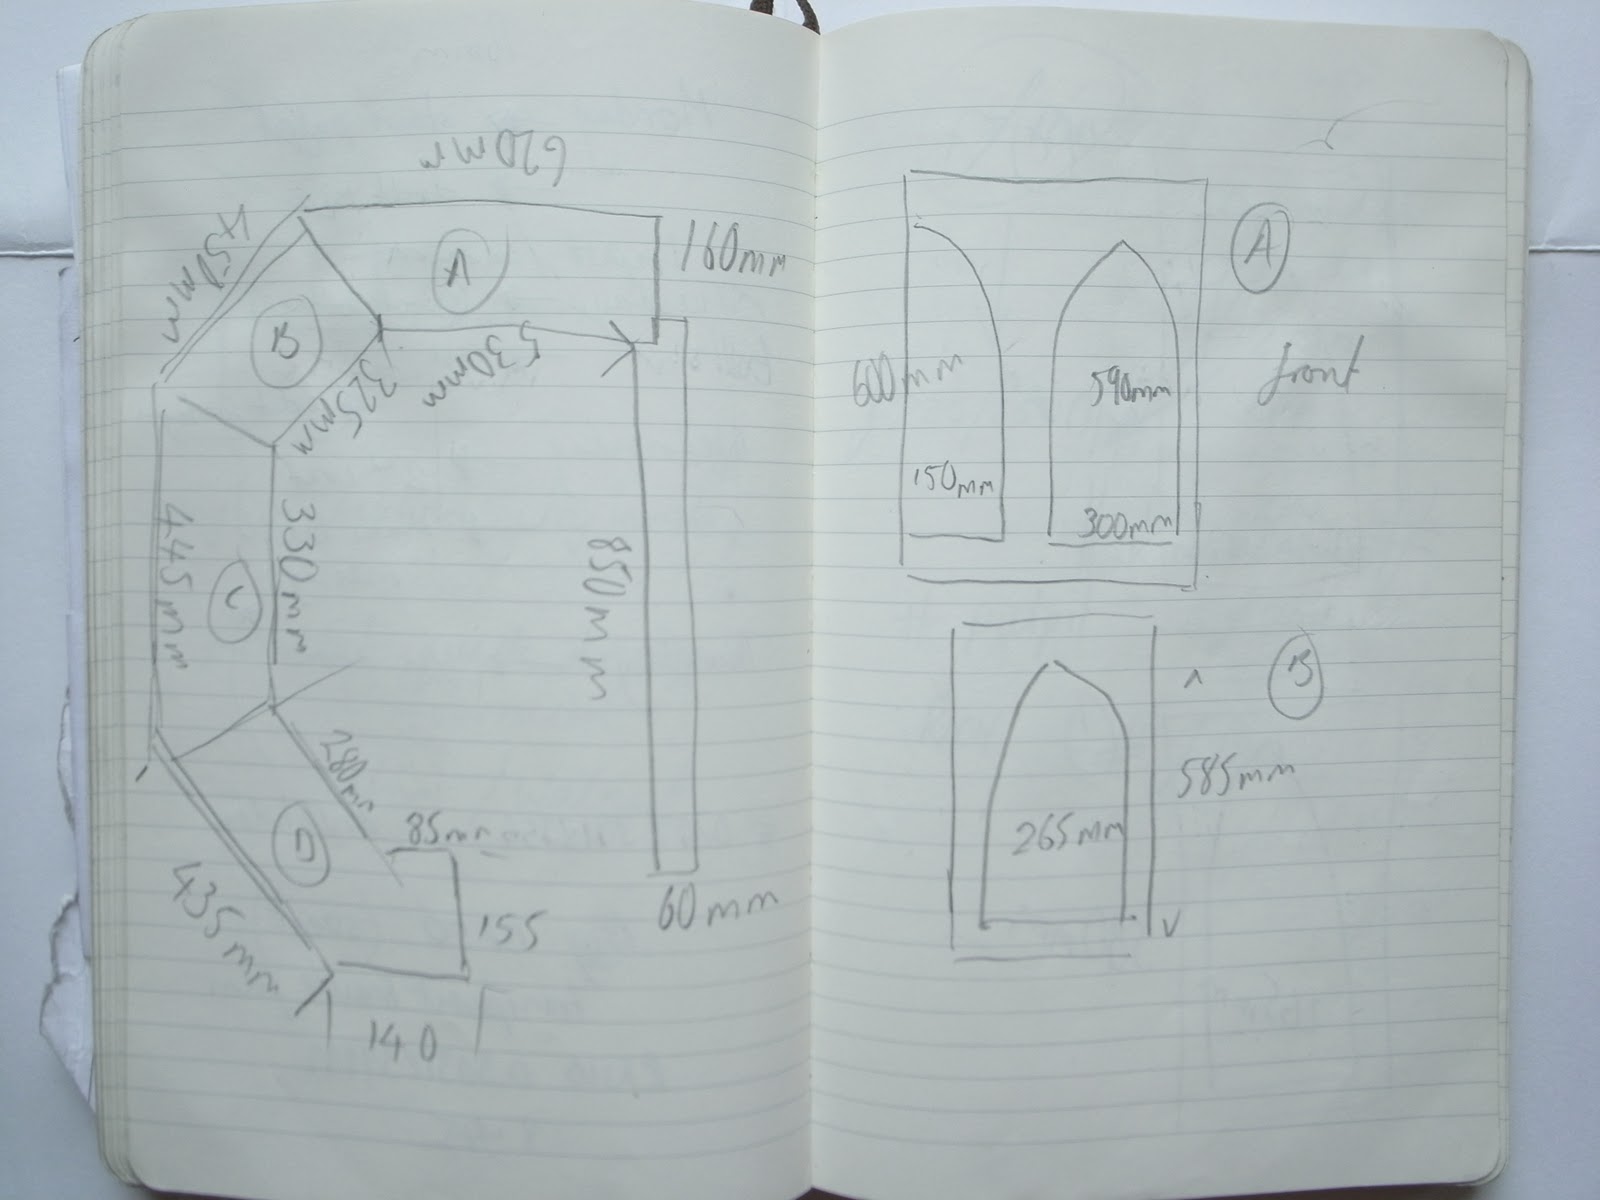 620mm
160mm
A
450mm
B
530mm
325mm
445mm
330mm
C
850mm
280mm
85mm
D
435mm
155
60mm
140
A
600mm
590mm
front
150mm
300mm
B
585mm
265mm